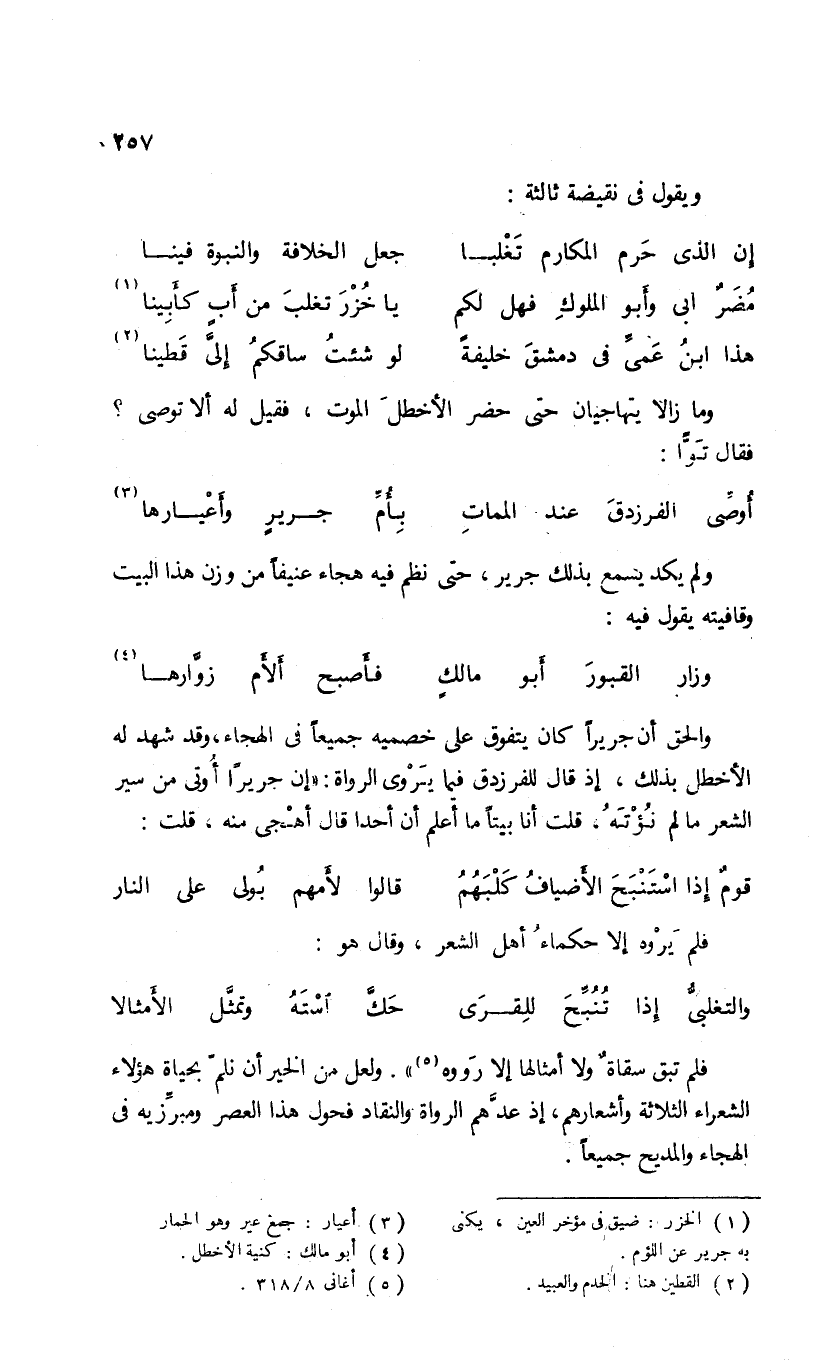 ٢٥٧
ويقول فى نقيضة ثالثة :
إن الذى حَرم المكارم تَغْلبـــا جعل الخلافة والنبوة فينـــا
مُضَرٌ ابى وأَبو الملوكِ فهل لكم يا خُزْرَ تغلبَ من أَبٍ كأَبِينا(١)
هذا ابنُ عَمىِّ فى دمشقَ خليفةً لو شئتُ ساقكمُ إلىَّ قَطينا(٢)
وما زالا يتهاجيان حتى حضر الأخطلَ الموت ، فقيل له ألا توصى ؟
فقال تَوًّا :
أُوصِّى الفرزدقَ عند المماتِ بِـأُمِّ جـــريرٍ وأَعْيـــارها(٣)
ولم يكد يسمع بذلك جرير ، حتى نظم فيه هجاء عنيفاً من وزن هذا البيت
وقافيته يقول فيه :
وزار القبورَ أَبو مالكٍ فـأَصبح أَلأَم زوَّارهـــا(٤)
والحق أن جريراً كان يتفوق على خصميه جميعاً فى الهجاء، وقد شهد له
الأخطل بذلك ، إذ قال للفرزدق فيما يَرْوى الرواة : «إن جريرًا أُوتى من سير
الشعر ما لم نُؤْتَهُ ، قلت أنا بيتاً ما أعلم أن أحدا قال أهْجى منه ، قلت :
قومٌ إذا اسْتَنْبَحَ الأَضيافُ كَلْبَهُمُ قالوا لأُمهم بُولى على النار
فلم يَرْوه إلا حكماءُ أهل الشعر ، وقال هو :
والتغلبىُّ إذا تُنُبِّحَ للِقـــرَى حَكَّ ٱسْتَهُ وتمثَّل الأَمثالا
فلم تبق سقاةٌ ولا أمثالها إلا رَووه(٥)» . ولعل من الخير أن نلمّ بحياة هؤلاء
الشعراء الثلاثة وأشعارهم، إذ عدَّهم الرواة والنقاد فحول هذا العصر ومبرِّزيه فى
الهجاء والمديح جميعاً .
(١) الخزر : ضيق فى مؤخر العين ، يكنى
به جرير عن اللؤم .
(٢) القطين هنا : الخدم والعبيد .
(٣) أعيار : جمع عير وهو الحمار
(٤) أبو مالك : كنية الأخطل .
(٥) أغانى ٣١٨/٨ .